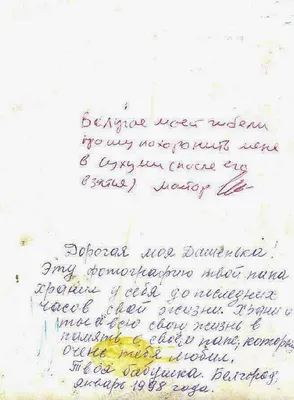 В случае моей гибели
прошу похоронить меня
в Сухуми (после его
взятия) майор
Дорогая моя Дашенька!
Эту фотографию твой папа
хранил у себя до последних
часов свой жизни. Храни и
ты всю свою жизнь в
память о своём папе, который
очень тебя любил.
Твоя бабушка. Белгород,
январь 1998 года.